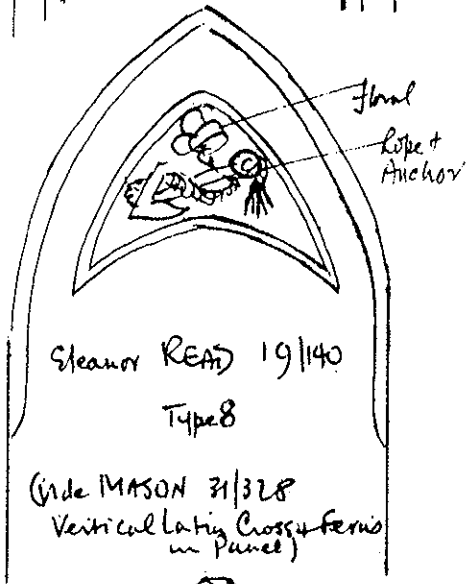 Floral
Rope +
Anchor
Eleanor READ 19/140
Type 8
(Vide MASON 31/328
Vertical Latin Cross + Ferns
in Panel)